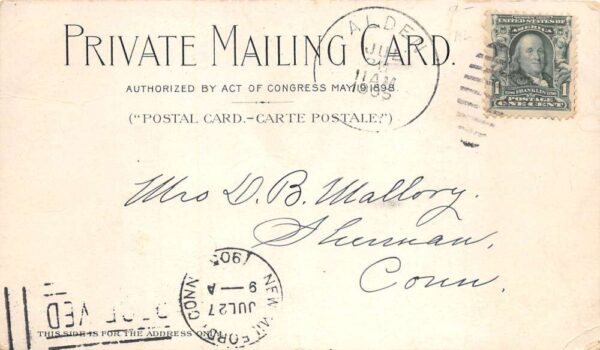 PRIVATE MAILING CARD.
AUTHORIZED BY ACT OF CONGRESS MAY 19, 1898.
("POSTAL CARD.–CARTE POSTALE.")
ALDEN
JUL
11 AM
1905
UNITED STATES OF AMERICA
FRANKLIN
1 POSTAGE 1
ONE CENT
Mrs D. B. Mallory.
Sherman,
Conn.
NEW MILFORD CONN
JUL 27
9 – A
1905
RECEIVED
THIS SIDE IS FOR THE ADDRESS ONLY.